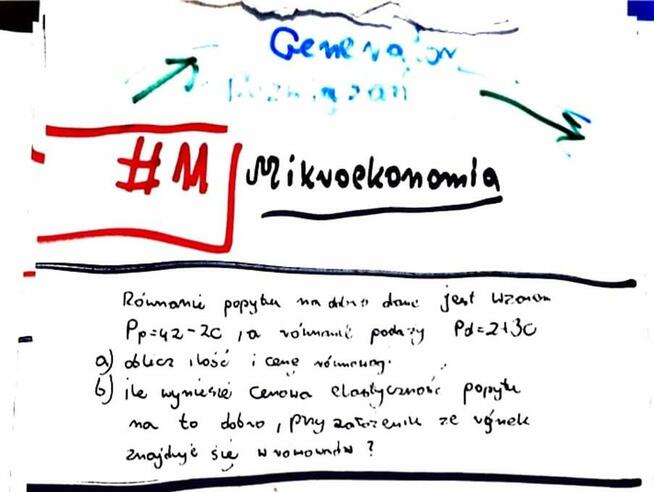 Generator
Rozwiązań
#M Mikroekonomia
Równanie popytu na dobro dane jest wzorem
Pp=42-2C, a równanie podaży Pd=2+3C
a) oblicz ilość i cenę równowag.
b) ile wyniesie cenowa elastyczność popytu
na to dobro, przy założeniu ze rynek
znajduje się w